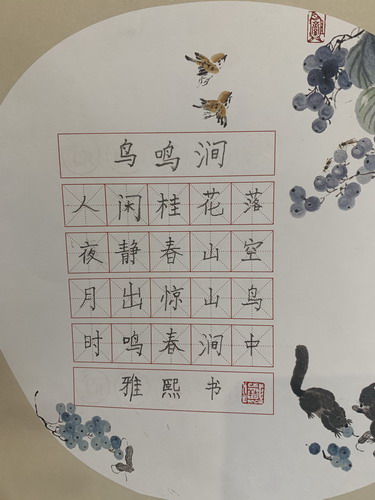 鸟鸣涧
人闲桂花落
夜静春山空
月出惊山鸟
时鸣春涧中
雅熙书